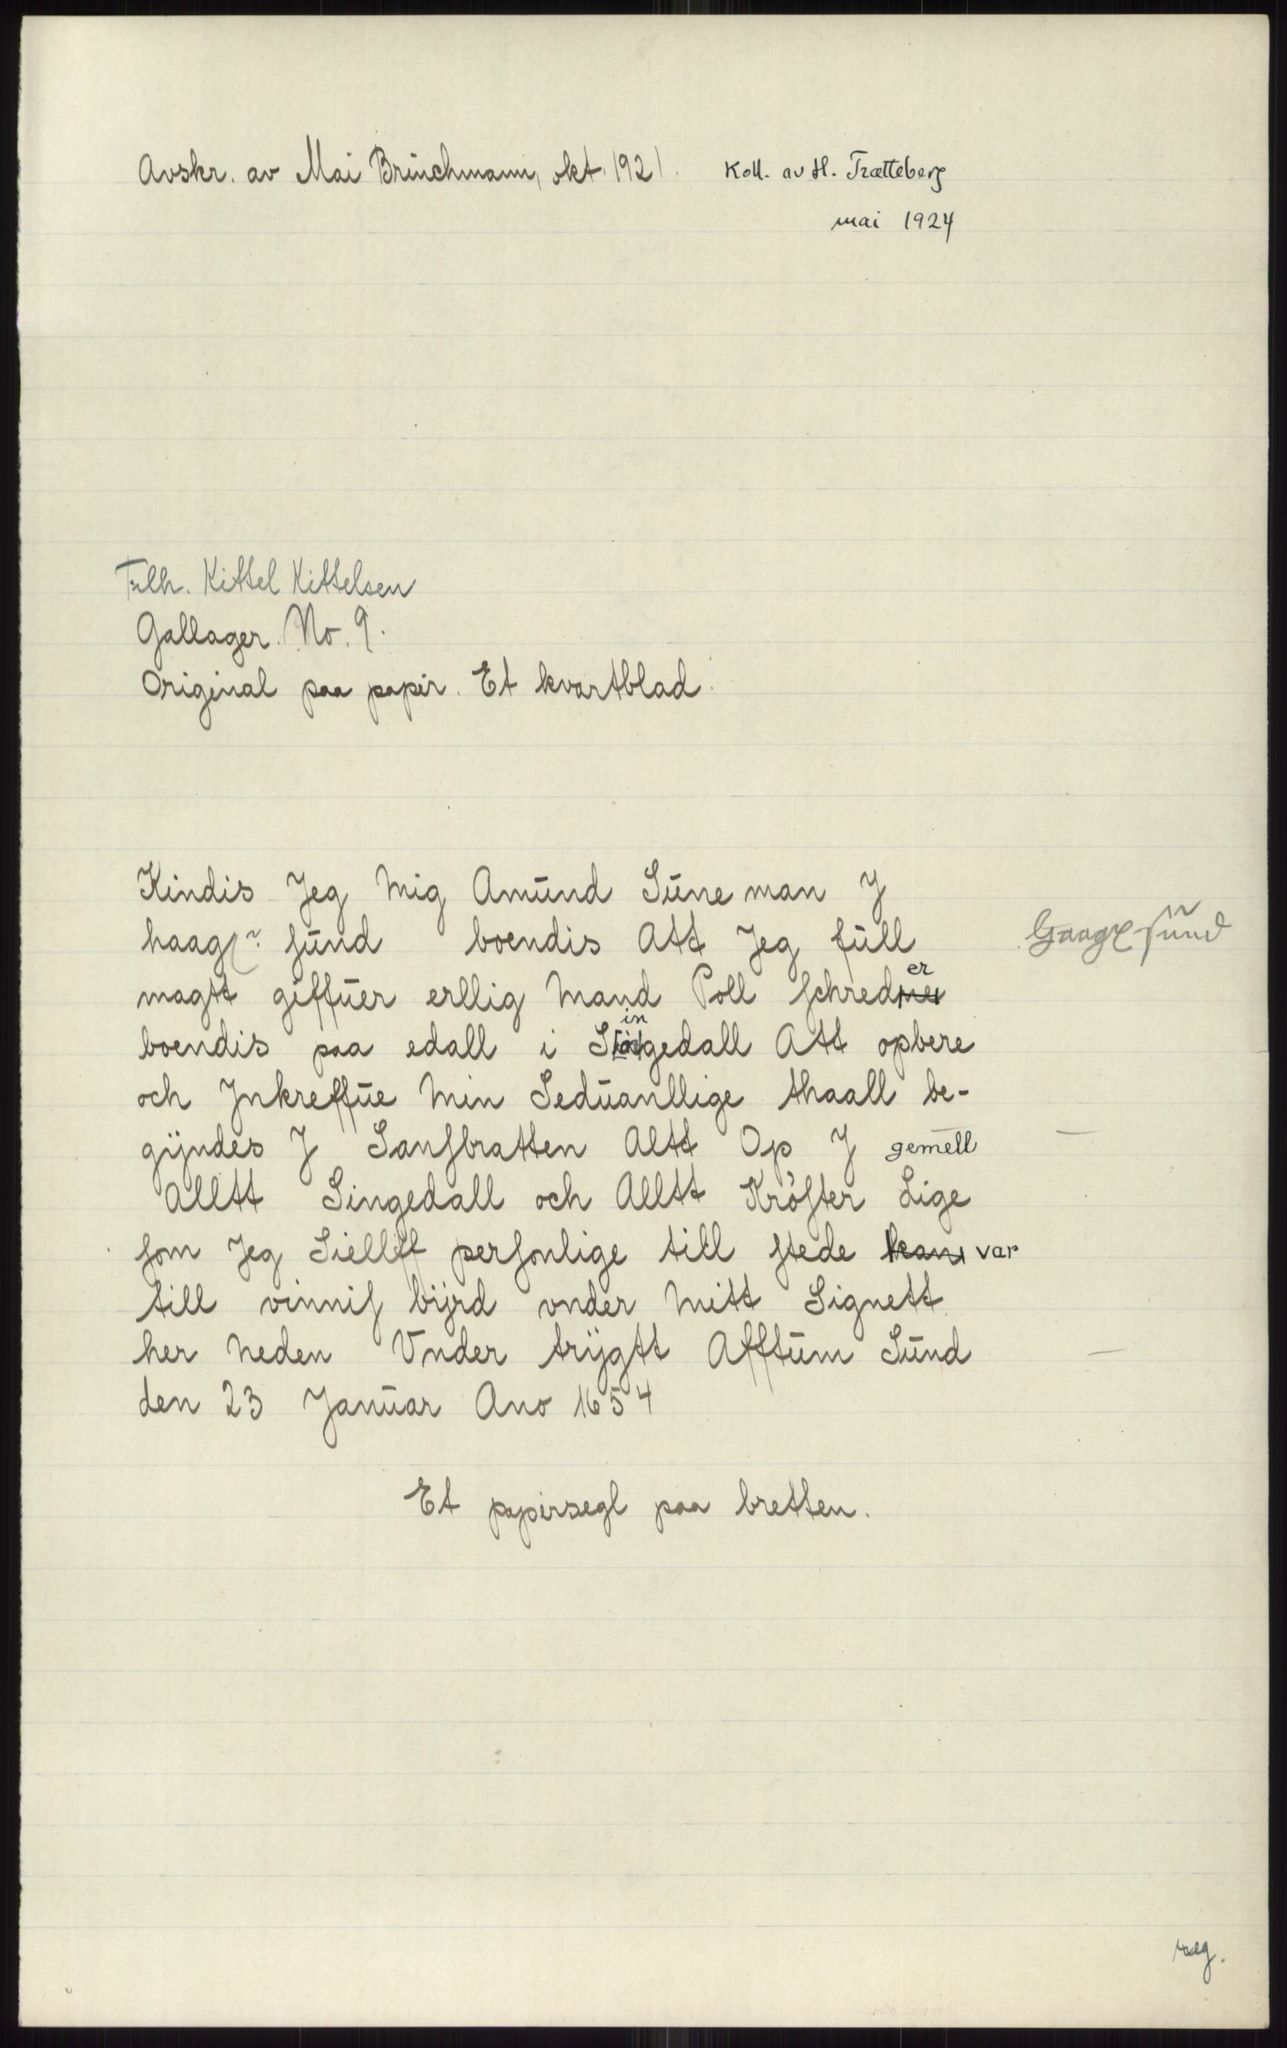 Avskr. av Mai Brüchmann, okt. 1921. Koll. av H. Trætteberg
mai 1924
Tilh. Kittel Kittelsen
Gallager. No. 9.
Original paa papir. Et kvartblad.
Kindis Jeg Mig Amünd Süneman J
haag ſünd boendis Att Jeg füll
magtt giffüer erllig Mand Poll ſchreder
boendis paa edall i Singedall Att opbere
och Jnkreffüe Min Sedüanllige thaall be-
gÿndes J Sanſbratten Altt Op J gemell
Alltt Singedall och Alltt Kröſter Lige
ſom Jeg Siellff perſonlige till ſtede var
till vinniſ bÿrd vnder Mitt Signett
her Neden Vnder trÿgtt Afftüm Sünd
den 23 Janüar Ano 1654
Et papirsegl paa bretten.
reg.